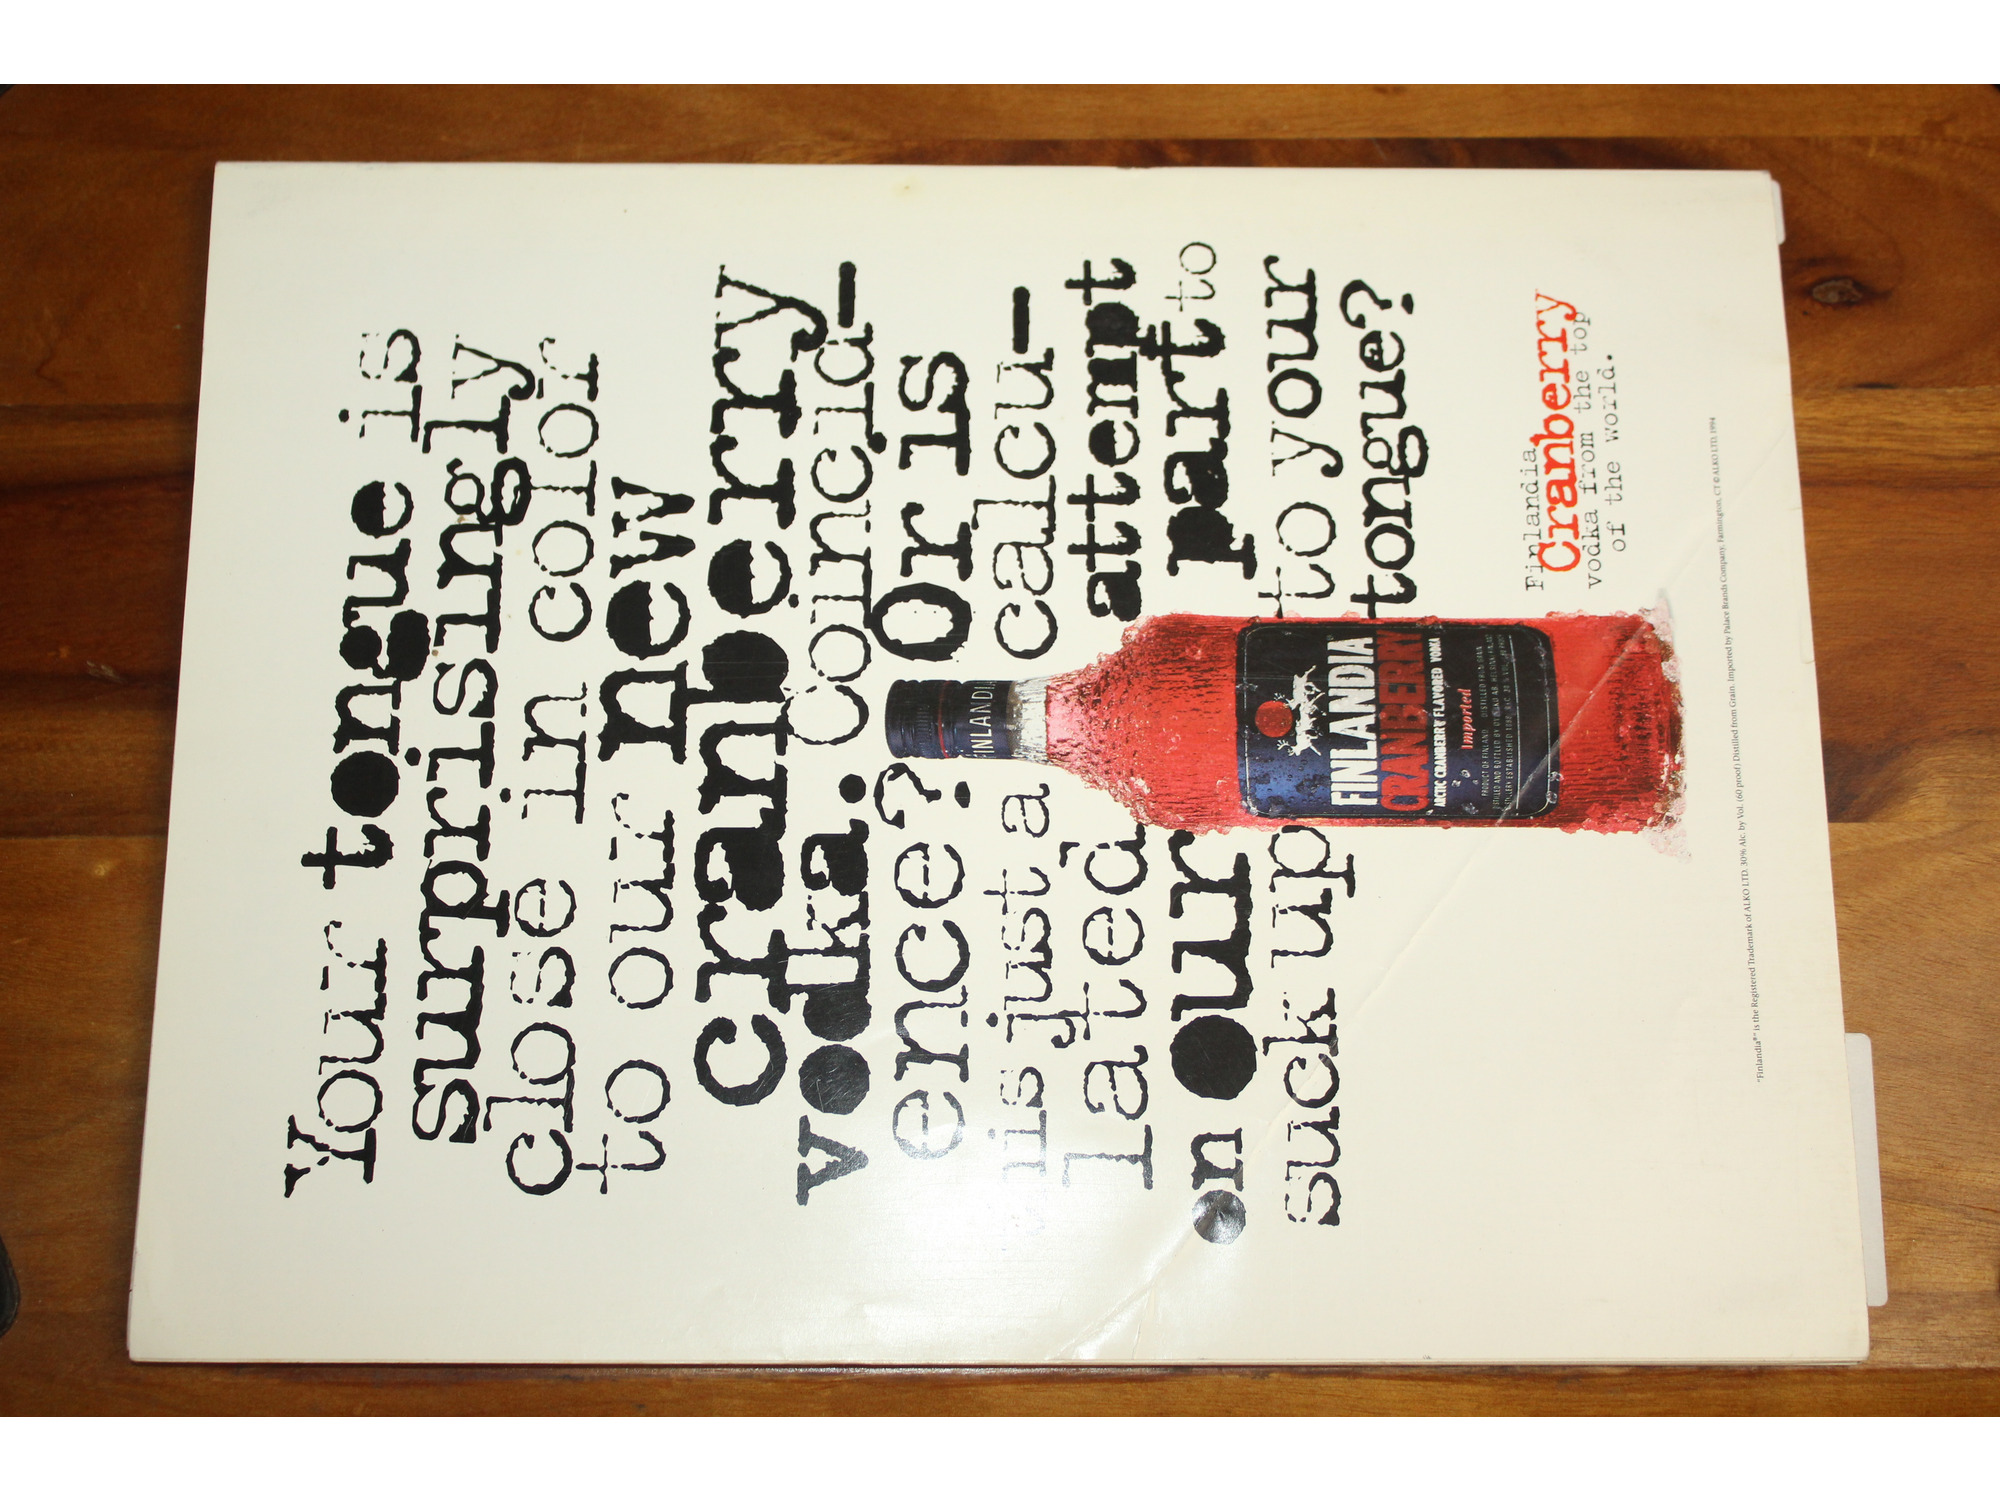 Your tongue is
surprisingly
close in color
to our new
cranberry
vodka. Coincid-
ence? Or is
is just a calcu-
lated attempt
on our part to
suck up to your
tongue?
FINLANDIA
FINLANDIA
CRANBERRY
ARCTIC CRANBERRY FLAVORED VODKA
Imported
Finlandia
Cranberry
vodka from the top
of the world.
"Finlandia®" is the Registered Trademark of ALKO LTD. 30% Alc. by Vol. (60 proof) Distilled from Grain. Imported by Palace Brands Company, Farmington, CT © ALKO LTD. 1994